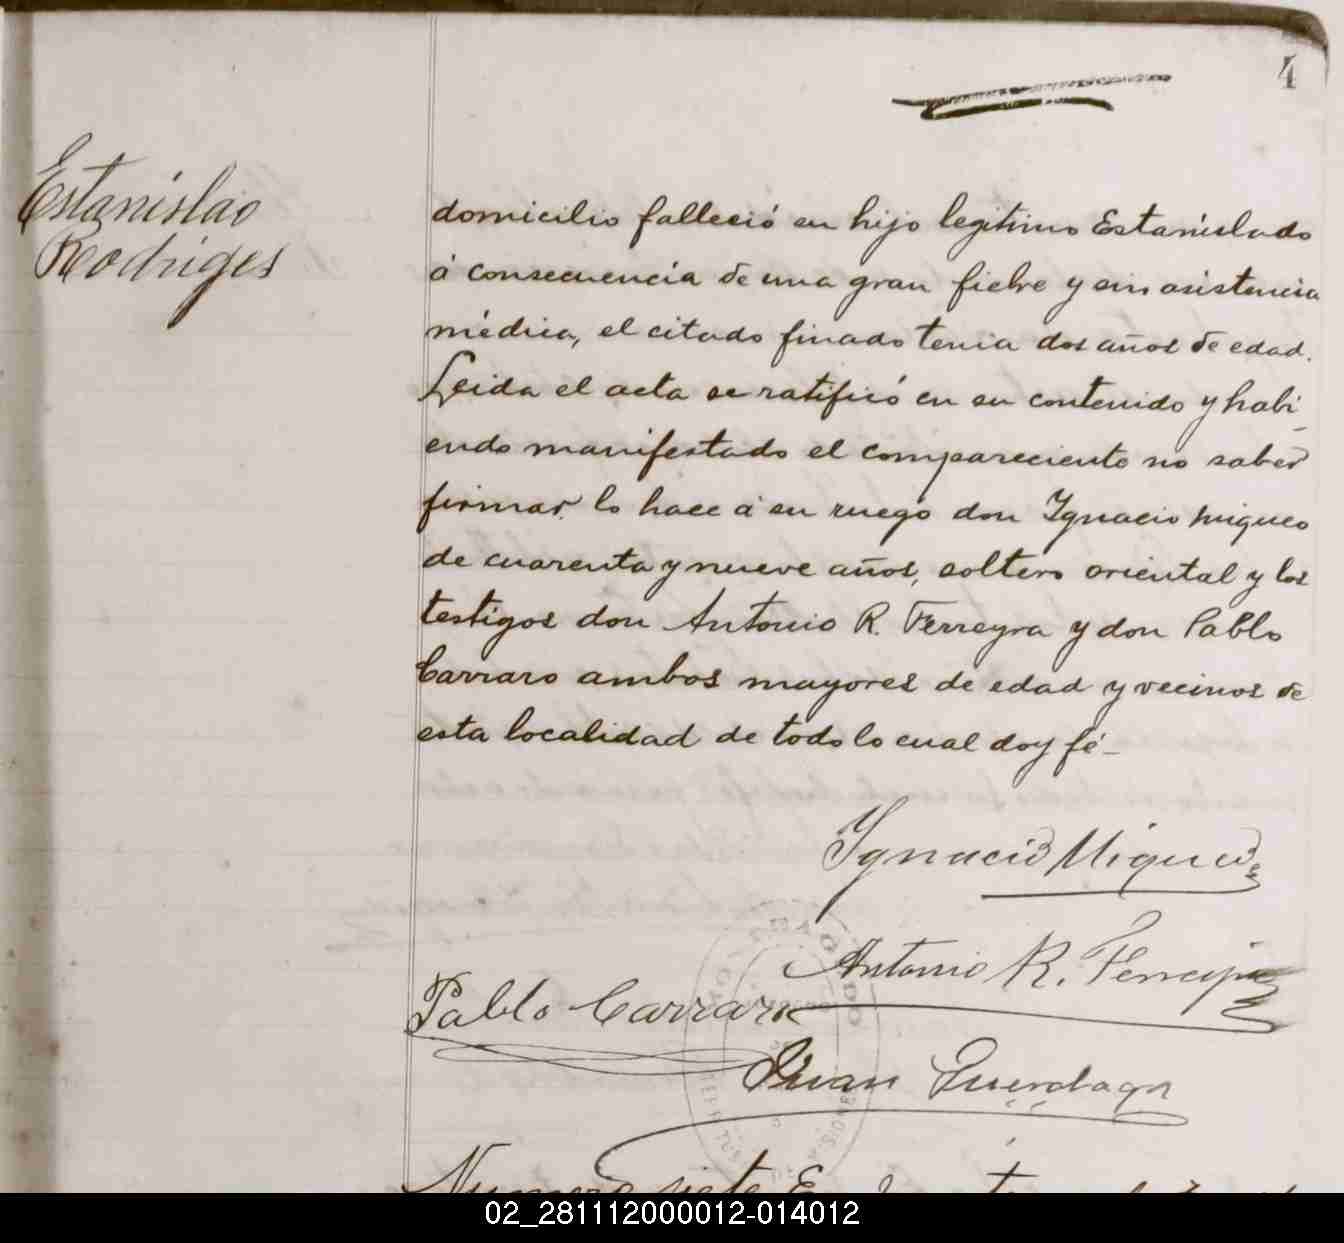 4
Estanislao
Rodriges
domicilio falleció su hijo legitimo Estanislado
á consecuencia de una gran fiebre y sin asistencia
médica, el citado finado tenia dos años de edad.
Leida el acta se ratificó en su contenido y habi_
endo manifestado el compareciente no saber
firmar lo hace á su ruego don Ygnacio Migueo
de cuarenta y nueve años, soltero oriental y los
testigos don Antonio R. Ferreyra y don Pablo
Carraro ambos mayores de edad y vecinos de
esta localidad de todo lo cual doy fé_
Ygnacio Migueo
Antonio R. Ferreyra
Pablo Carraro
Juan
Numero siete En
02_281112000012-014012